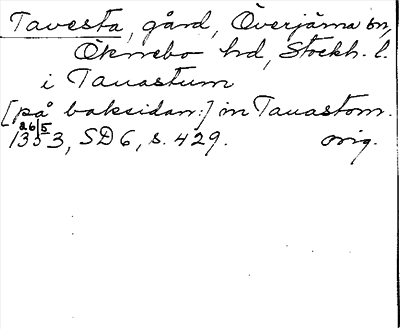 Tavesta, gård, Överjärna sn,
Öknebo hd, Stockh. l.
i Tauastum
[på baksidan:] in Tauastom.
26/5
1353, SD 6, s. 429. orig.